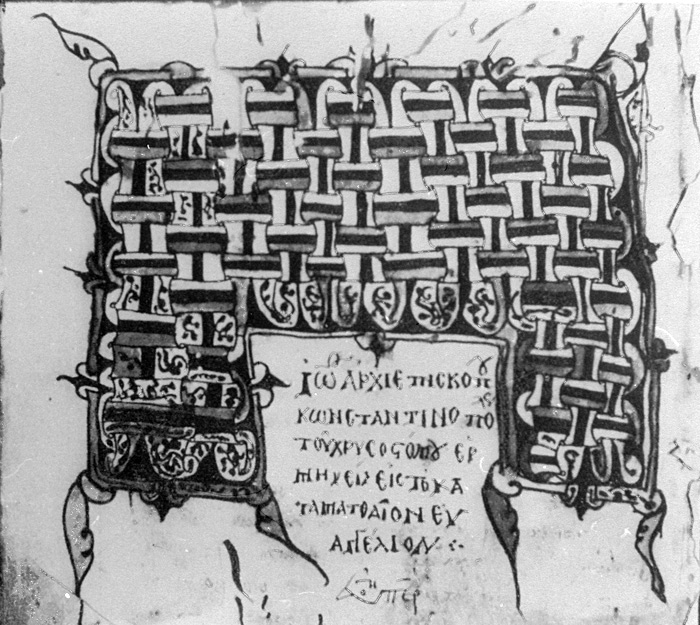 ἸΩ ἈΡΧΙΕΠΗСΚΟΠ
ΚΩΝСΤΑΝΤΙΝΟΠΟ
ΤΟΥ ΧΡΥСΟСΤΟΜΟΥ ΕΡ
ΜΗΝΕΙΑ ΕΙС ΤΟ ΚΑ
ΤΑ ΜΑΤΘΑΙΟΝ ΕΥ
ΑΓΓΕΛΙΟΝ :·